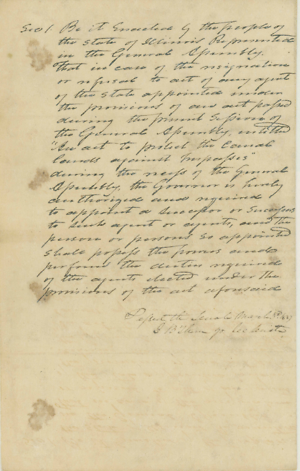 Sec 1 Be it Enacted by the people of
the State of Illinois Represented
in the General Assembly,
That in case of the resignation
or refusal to act of any agent
of the State appointed under
the provisions of an act passed
during the present Session of
the General Assembly entitled
"An act to protect the Canal
lands against trespasses"
during the recess of the General
Assembly, the Governor is hereby
authorized and required
to appoint a Successor or Successors
to such agent or agents, and the
person or persons so appointed
shall possess the powers and
perform the duties required
of the agents elected under the
provisions of the act aforesaid
the Senate March